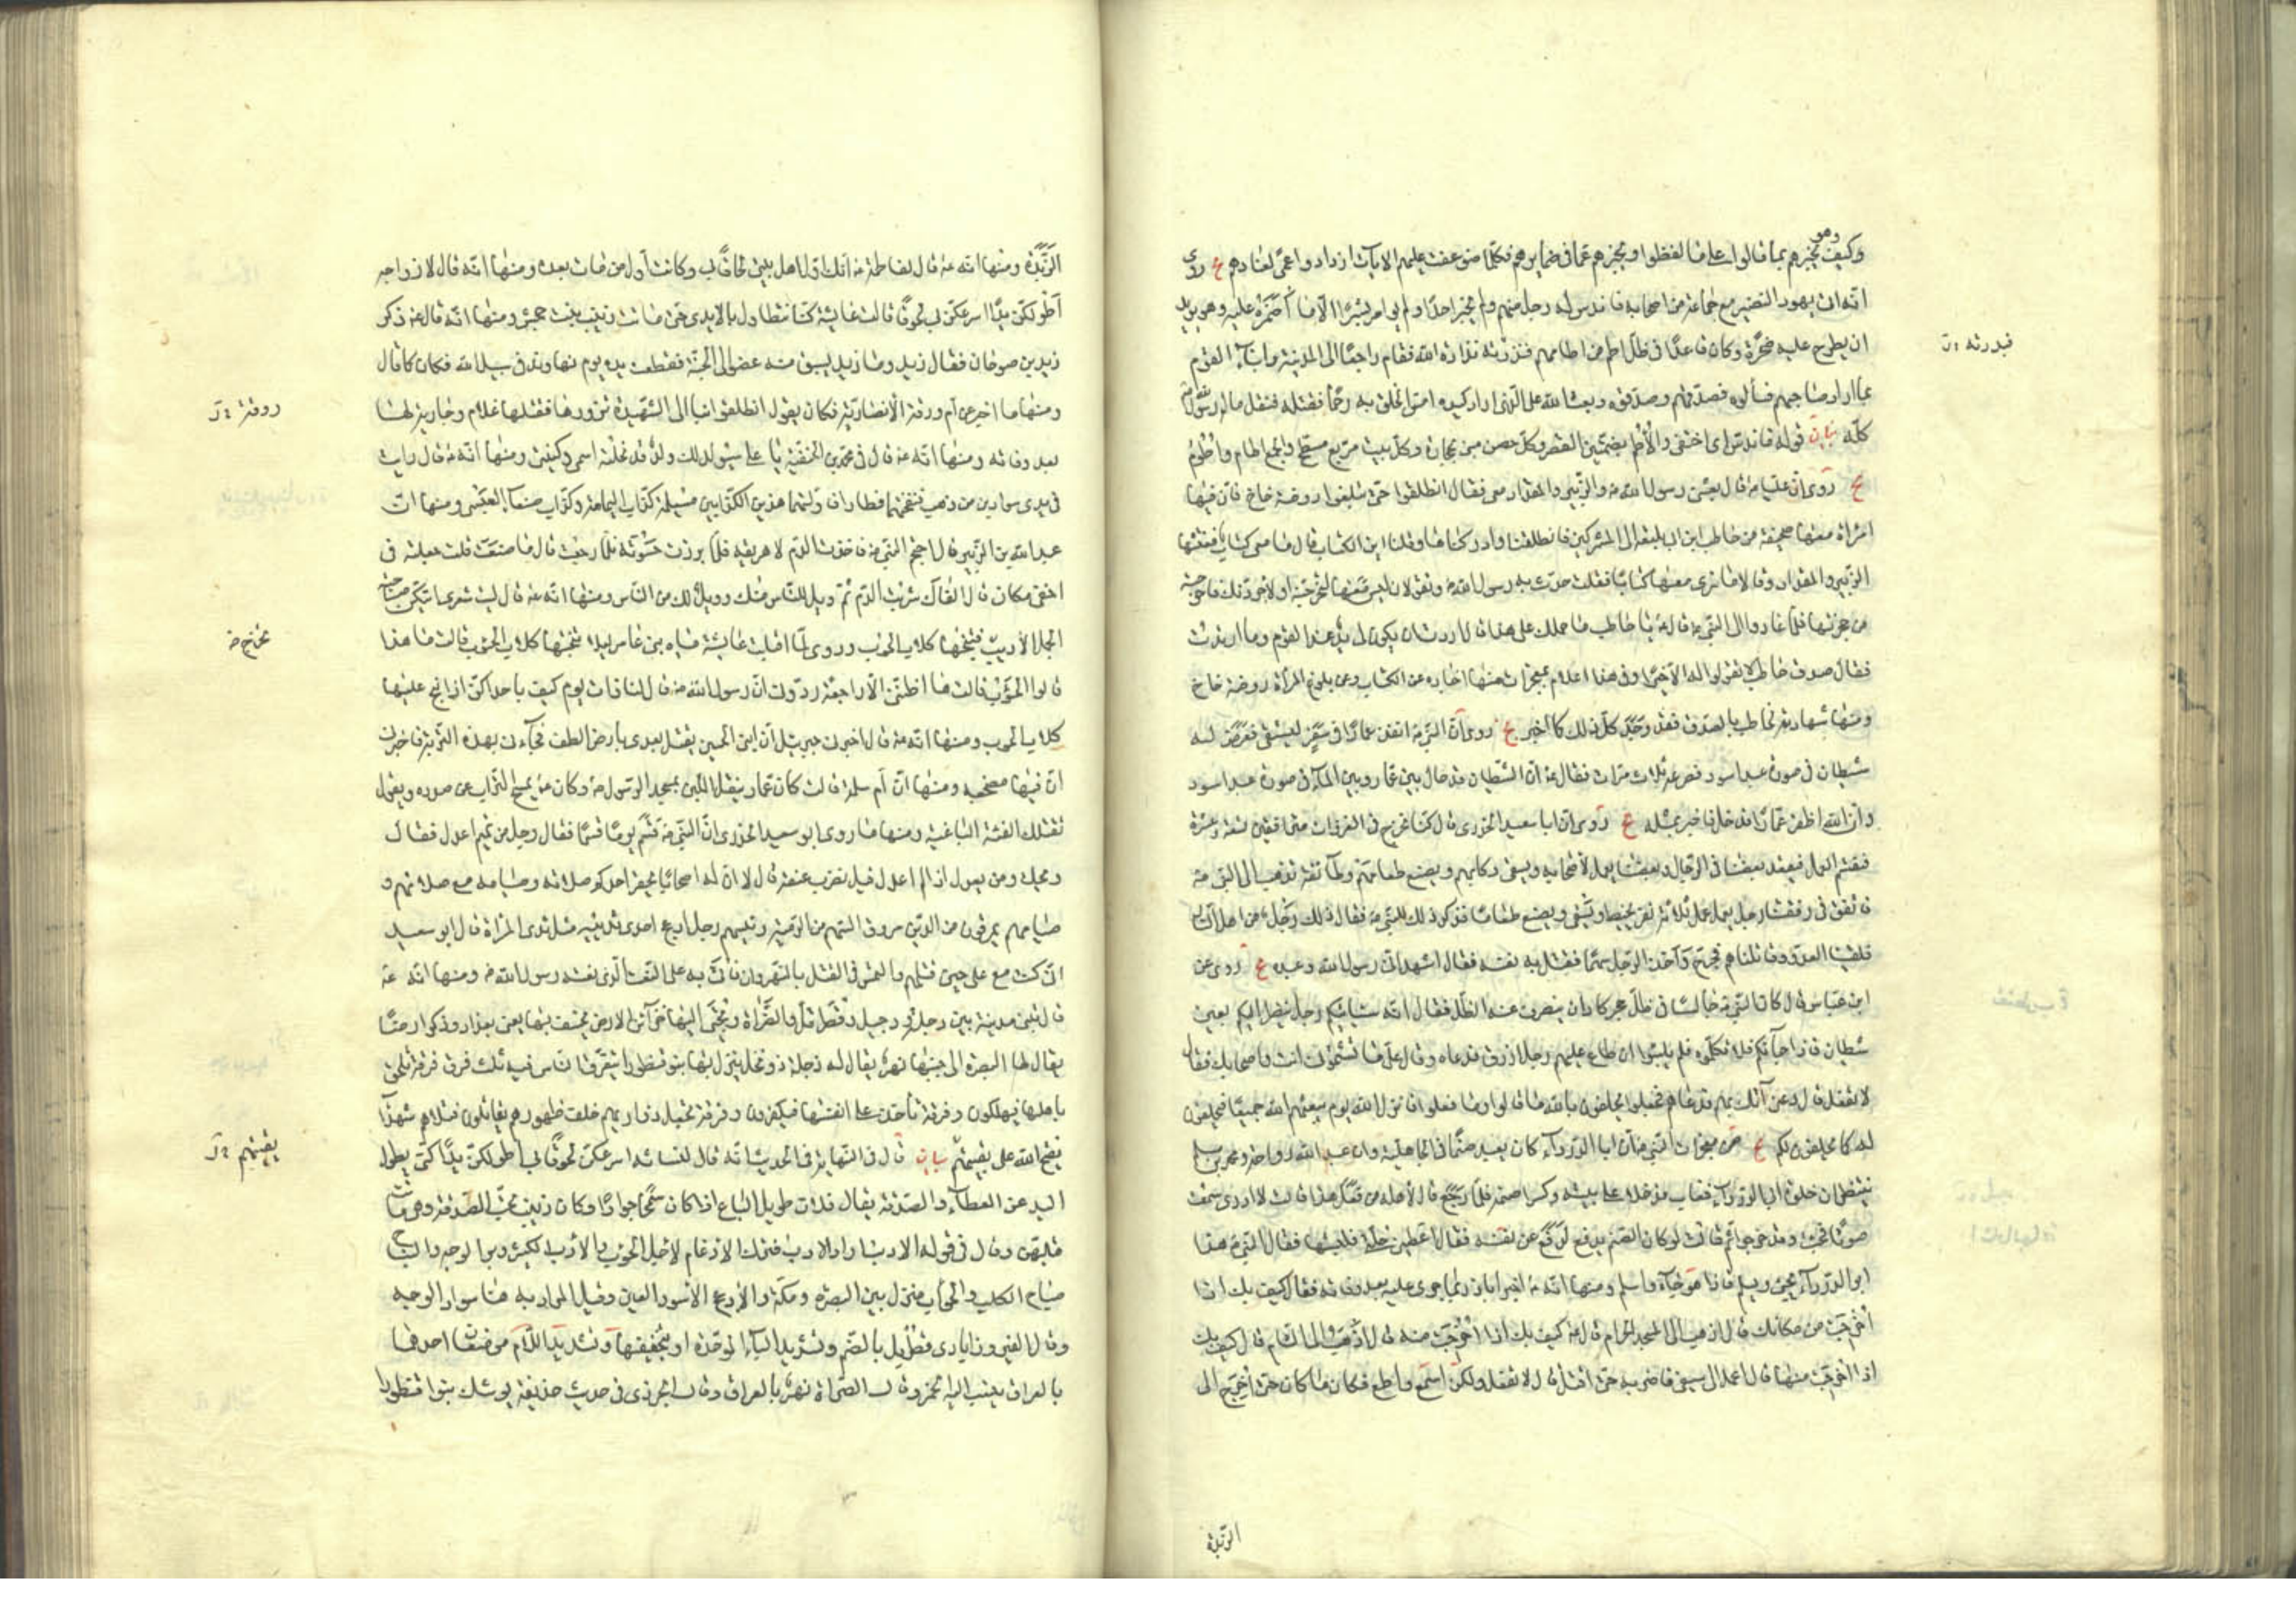 وهو
وكيف يخبرهم بما قالوا على ما لفظوا ويخبرهم عما في ضمايرهم فكلما ضوعفت عليهم الايات ازدادوا عمى لعنادهم يج روي
انه اتى يهود النضير مع جماعة من اصحابه فاندس له رجل منهم ولم يخبر احدا ولم يوامر بشرا الا ما اضمره عليه وهو يريد
ان يطرح عليه صخرة وكان قاعدا في ظل اطم من اطامهم فنذرته نذارة الله فقام راجعا الى المدينة وانبأ القوم
بما اراد صاحبهم فسألوه فصدقهم وصدقوه وبعث الله على الذي اراد كيده امس الخلق به رحما فقتله فنفل ماله رسول الله
كله بيان قوله فاندس اى اختفى والأطم بضمتين القصر وكل حصن مبنى بحجارة وكل بيت مربع مسطح والجمع اطام واطوم
يج روى ان عليا ع قال بعثنى رسول الله ص والزبير والمقداد معى فقال انطلقوا حتى تبلغوا روضة خاخ فان فيها
امرأة معها صحيفة من حاطب ابن ابى بلتعة الى المشركين فانطلقنا وادركناها وقلنا اين الكتاب قالت ما معى كتاب ففتشها
الزبير والمقداد وقالا ما نرى معها كتابا فقلت حدث به رسول الله ص وتقولان ليس معها لتخرجنه او لاجردنك فاخرجته
من حجزتها فلما عادوا الى النبي ص قال ص يا حاطب ما حملك على هذا قال اردت ان يكون لى يد عند القوم وما ارتددت
فقال صدق حاطب لا تقولوا له الا خيرا وفى هذا اعلام بمعجزات منها اخباره عن الكتاب وعن بلوغ المرأة روضة خاخ
ومنها شهادته لحاطب بالصدق فقد وجد كل ذلك كما اخبر يج روى ان النبي ص انفذ عمارا فى سفر ليستقى فعرض له
شيطان فى صورة عبد اسود فصرعه ثلاث مرات فقال ص ان الشيطان قد حال بين عمار وبين الماء فى صورة عبد اسود
وان الله اظفر عمارا فدخل فاخبر بمثله يج روى ان ابا سعيد الخدرى قال كنا نخرج فى الغزوات مترافقين تسعة وعشرة
فنقسم العمل فيقعد بعضنا فى الرحال وبعضنا يعمل لأصحابه ويسقى ركابهم ويصنع طعامهم وطائفة تذهب الى النبى ص
فاتفق فى رفقتنا رجل يعمل عمل ثلاثة نفر يخيط ويسقى ويصنع طعاما فذكر ذلك للنبي ص فقال ذلك رجل من اهل النار
فلقينا العدو وقاتلناهم فجرح وأخذ الرجل سهما فقتل به نفسه فقال اشهد انى رسول الله وعبده يج روى عن
ابن عباس قال كان النبي ص جالسا فى ظل حجر كاد ان ينصرف عنه الظل فقال انه سيأتيكم رجل ينظر اليكم بعين
شيطان فاذا جاءكم فلا تكلموه فلم يلبثوا ان طلع عليهم رجل ازرق فدعاه وقال على ما تشتموننى انت واصحابك فقال
لا نفعل قال دعنى آتك بهم فدعاهم فجعلوا يحلفون بالله ما قالوا وما فعلوا فانزل الله يوم يبعثهم الله جميعا فيحلفون
له كما يحلفون لكم يج من معجزات النبي ص ان ابا الدرداء كان يعبد صنما فى الجاهلية وان عبد الله بن رواحة ومحمد بن مسلمة
ينتظران خلوة ابى الدرداء فغاب فدخلا على بيته وكسرا صنمه فلما رجع قال لأهله من فعل هذا قالت لا ادرى سمعت
صوتا فجئت وقد خرجوا ثم قالت لو كان الصنم يدفع لدفع عن نفسه فقال اعطينى حلتى فلبسها فقال النبي ص هذا
ابو الدرداء يجئ ويسلم فاذا هو جاء واسلم ومنها انه ص اخبر اباذر بما جرى عليه بعد وفاته فقال كيف بك اذا
أخرجت من مكانك قال اذهب الى المسجد الحرام قال ص كيف بك اذا اخرجت منه قال اذهب الى الشام قال كيف بك
اذا اخرجت منها قال اعمد الى سيفى فاضرب به حتى اقتل قال لا تفعل ولكن اسمع واطع فكان ما كان حتى اخرج الى
الربذة
الربذة ومنها انه ص قال لفاطمة ع انك اول اهل بيتى لحاقا بى وكانت أول من مات بعده ومنها انه قال لازواجه
أطولكن يدا اسرعكن بى لحوقا قالت عايشة كنا نتطاول بالايدى حتى ماتت زينب بنت جحش ومنها انه قال ص ذكر
زيد بن صوحان فقال زيد وما زيد يسبق منه عضو الى الجنة فقطعت يده يوم نهاوند فى سبيل الله فكان كما قال
ومنها ما اخبر عن أم ورقة الأنصارية فكان يقول انطلقوا بنا الى الشهيدة نزورها فقتلها غلام وجارية لها
بعد وفاته ومنها انه ص قال فى محمد بن الحنفية يا على سيولد لك ولد قد نحلته اسمى وكنيتى ومنها انه ص قال رايت
فى يدى سوارين من ذهب فنفختهما فطارا فاولتهما هذين الكذابين مسيلمة كذاب اليمامة وكذاب صنعاء العبسى ومنها ان
عبد الله بن الزبير قال احتجم النبي ص فاخذت الدم لاهريقه فلما برزت حسوته فلما رجعت قال ما صنعت قلت جعلته فى
اخفى مكان قال الفاك شربت الدم ثم ويل للناس منك وويل لك من الناس ومنها انه ص قال ليت شعرى ايتكن صاحبة
الجمل الأدبب تنبحها كلاب الحوئب وروى لما اقبلت عايشة مياه بنى عامر ليلا نبحتها كلاب الحوئب قالت ما هذا
قالوا الحوئب قالت ما اظننى الا راجعة ردونى ان رسول الله ص قال لنا ذات يوم كيف باحداكن اذا نبح عليها
كلاب الحوئب ومنها انه ص قال اخبرنى جبريل ان ابنى الحسين يقتل بعدى بأرض الطف فجاءنى بهذه التربة فاخبرنى
ان فيها مضجعه ومنها ان أم سلمة قالت كان عمار ينقل اللبن بمسجد الرسول ص وكان ص يمسح التراب عن صدره ويقول
تقتلك الفئة الباغية ومنها ما روى ابو سعيد الخدرى ان النبي ص قسم يوما قسما فقال رجل من تميم اعدل فقال
ويحك ومن يعدل اذا لم اعدل قيل نضرب عنقه قال لا ان له اصحابا يحقر احدكم صلاته وصيامه مع صلاتهم و
صيامهم يمرقون من الدين مروق السهم من الرمية رئيسهم رجل ادعج احدى ثدييه مثل ثدى المرأة قال ابو سعيد
انى كنت مع على حين قتلهم والتمس فى القتلى بالنهروان فأتى به على النعت الذى نعته رسول الله ص ومنها انه ص
قال تبنى مدينة بين دجلة ودجيل وقطربل والصراة وتجبى اليها خزائن الارض يخسف بها يعنى بغداد وذكر ارضا
يقال لها البصرة الى جنبها نهر يقال له دجلة ذو نخل ينزل بها بنو قنطورا يتفرق الناس فيه ثلث فرق فرقة تلحق
باهلها فيهلكون وفرقة تأخذ على انفسها فيكفرون وفرقة تجعل ذراريهم خلف ظهورهم يقاتلون قتلاهم شهداء
يفتح الله على بقيتهم بيان قال فى النهاية فى الحديث انه قال لنسائه اسرعكن لحوقا بى اطولكن يدا كنى بطول
اليد عن العطاء والصدقة يقال فلان طويل الباع اذا كان سمحا جوادا وكان زينب تحب الصدقة وهى ماتت
قبلهن وقال فى قوله الادبب اراد الادب ففك الادغام لاجل الحوئب والأدب الكثير وبر الوجه والنباح
صياح الكلب والحوأب منزل بين البصرة ومكة والادعج الأسود العين وقيل المراد به هنا سواد الوجه
وقال الفيروزابادى قطربل بالضم وتشديد الباء الموحدة او بتخفيفها وتشديد اللام موضعان احدهما
بالعراق ينسب اليه الخمر وقال الصراة نهر بالعراق وقال الجزرى فى حديث حذيفة يوشك بنوا قنطورا